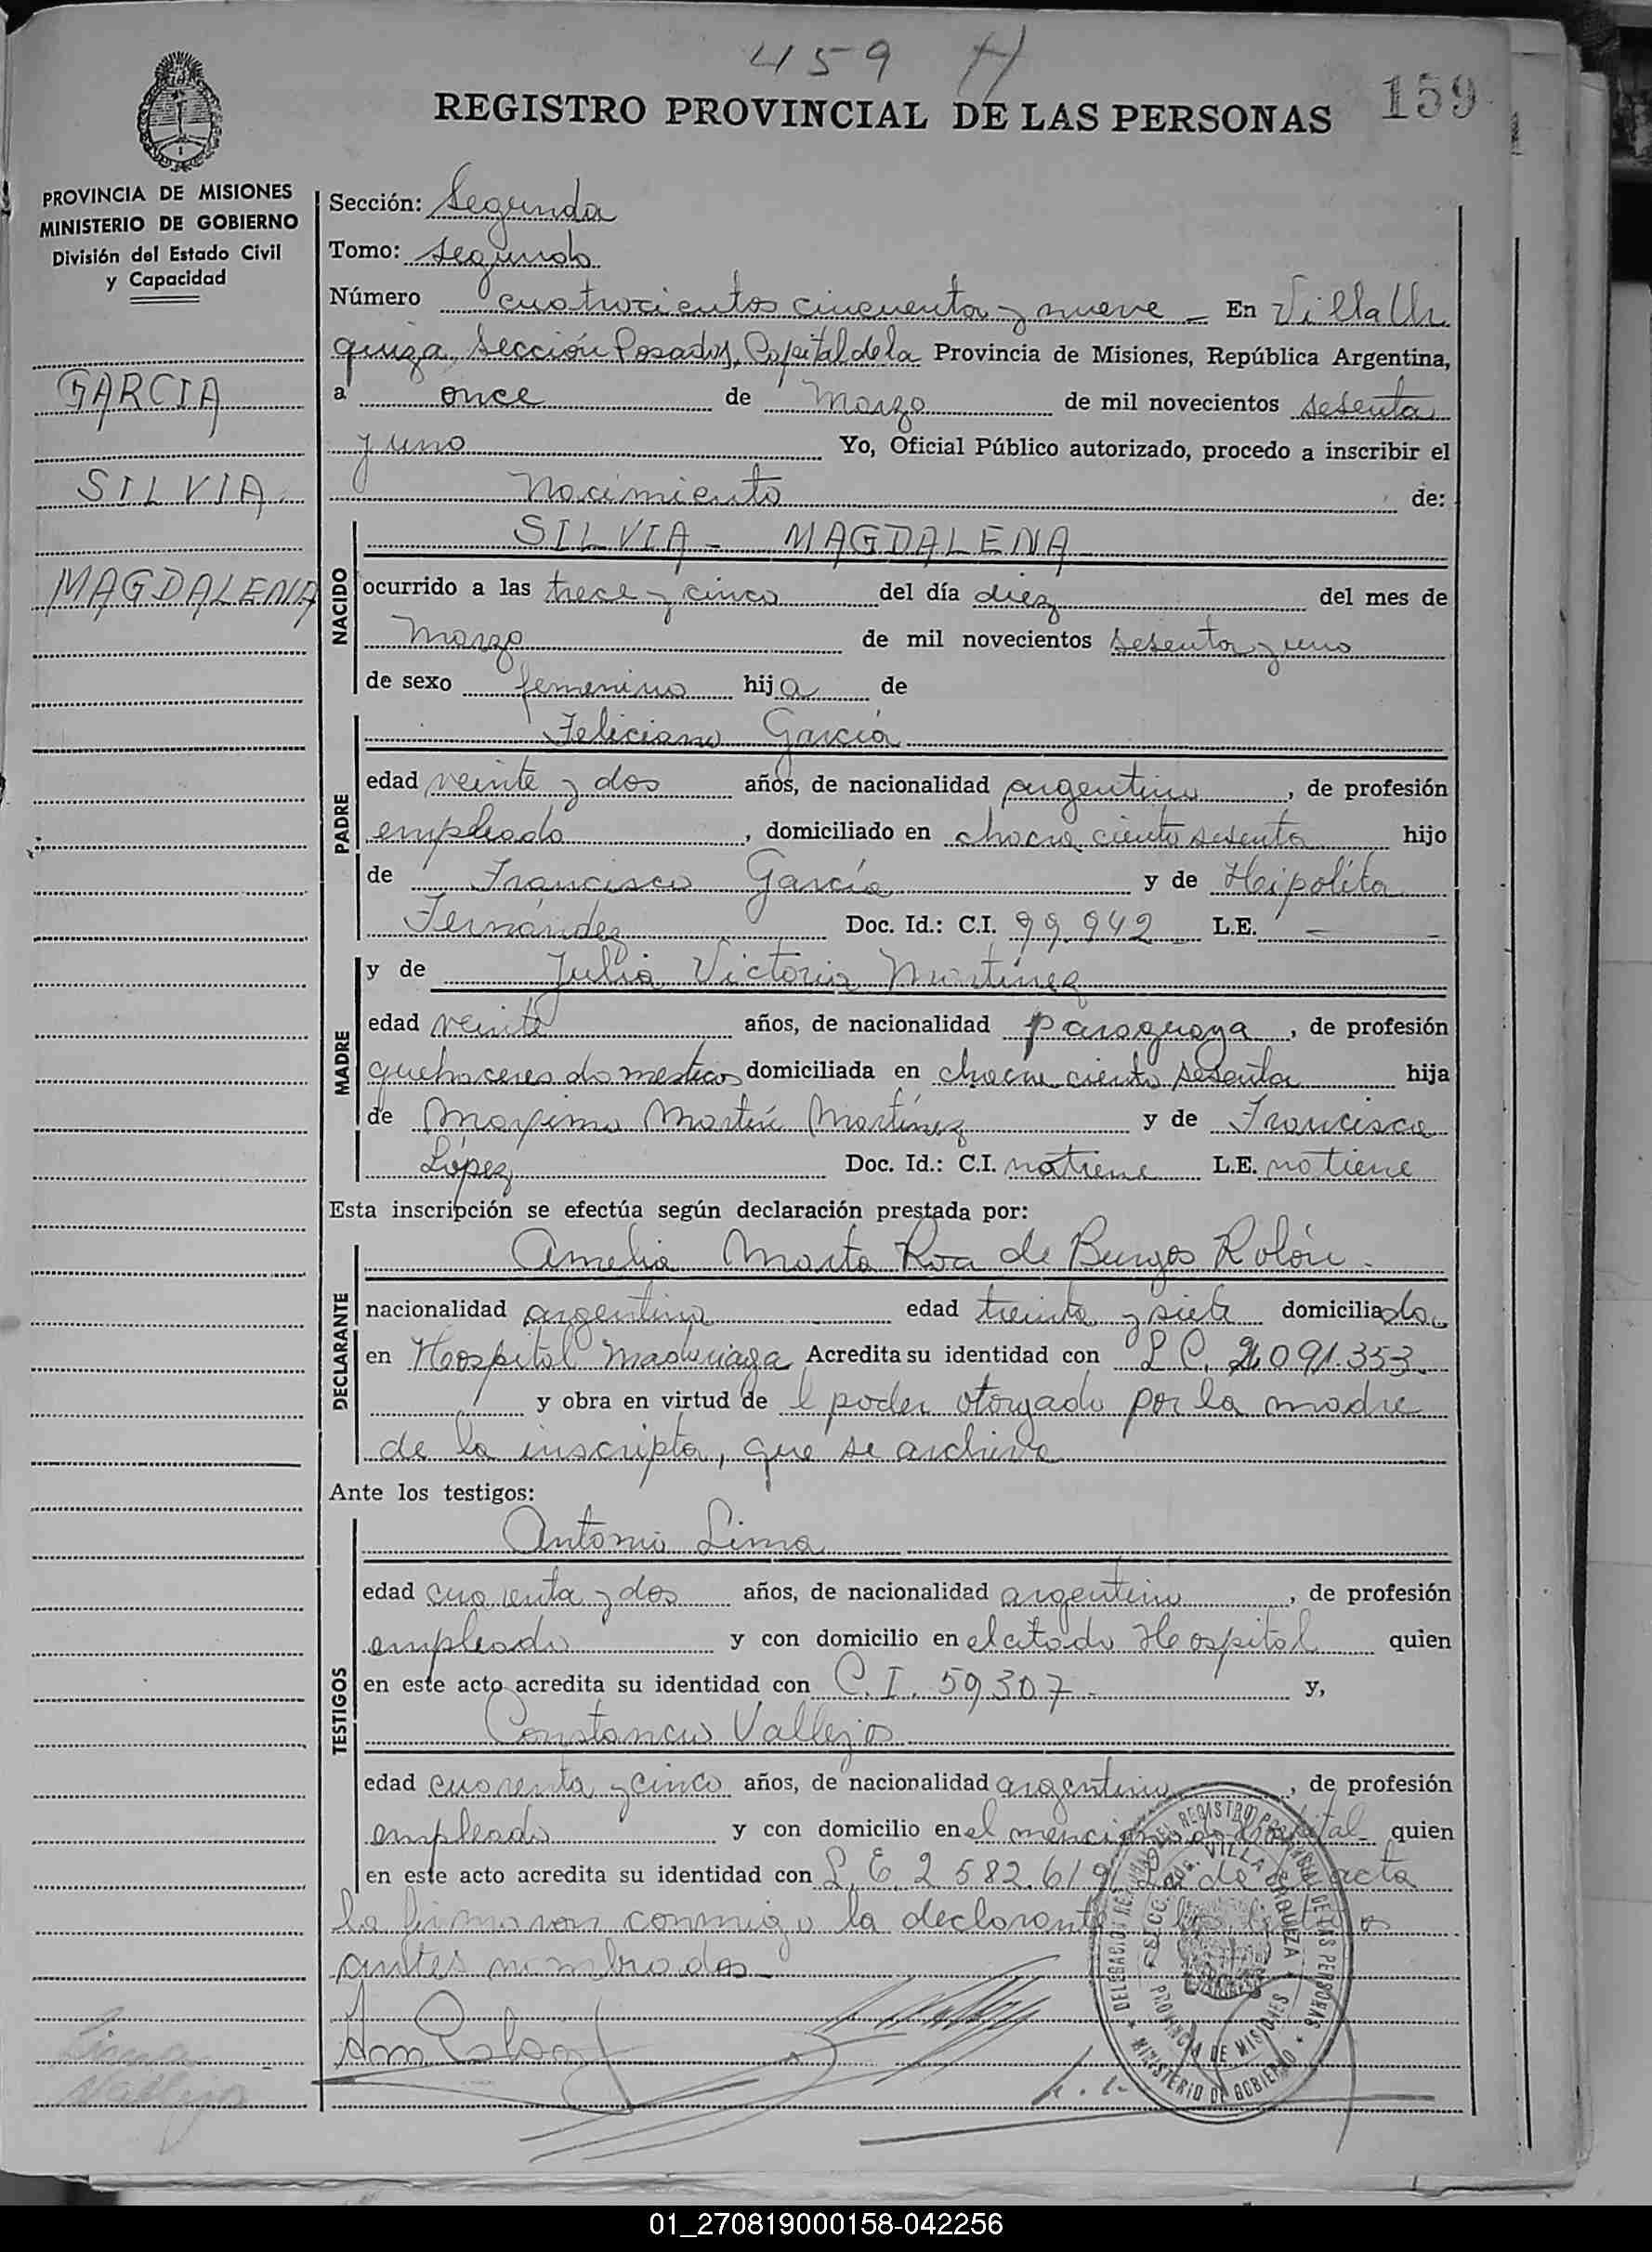 459 H
159
REGISTRO PROVINCIAL DE LAS PERSONAS
PROVINCIA DE MISIONES
MINISTERIO DE GOBIERNO
División del Estado Civil
y Capacidad
GARCIA
SILVIA
MAGDALENA
Sección: Segunda
Tomo: segundo
Número cuatrocientos cincuenta y nueve - En Villa Ur
quiza, Sección Posadas, Capital de la Provincia de Misiones, República Argentina,
a once de Marzo de mil novecientos sesenta
y uno Yo, Oficial Público autorizado, procedo a inscribir el
Nacimiento de:
NACIDO
SILVIA - MAGDALENA
ocurrido a las trece y cinco del día diez del mes de
Marzo de mil novecientos sesenta y uno
de sexo femenino hija de
PADRE
Feliciano García
edad veinte y dos años, de nacionalidad argentino, de profesión
empleado, domiciliado en chacra ciento sesenta hijo
de Francisco García y de Heipólita
Fernández Doc. Id.: C.I. 99.942 L.E. —
MADRE
y de Julia Victoria Martínez
edad veinte años, de nacionalidad paraguaya, de profesión
quehaceres domesticos domiciliada en chacra ciento sesenta hija
de Maximo Martín Martínez y de Francisca
López Doc. Id.: C.I. no tiene L.E. no tiene
Esta inscripción se efectúa según declaración prestada por:
DECLARANTE
Amelia Marta Roa de Burgos Rolón
nacionalidad argentina edad treinta y siete domiciliada
en Hospital Madariaga Acredita su identidad con L C. 2.091.353
y obra en virtud de l poder otorgado por la madre
de la inscripta, que se archiva
Ante los testigos:
TESTIGOS
Antonio Lima
edad cuarenta y dos años, de nacionalidad argentino, de profesión
empleado y con domicilio en el citado Hospital quien
en este acto acredita su identidad con C. I. 59307 - y,
Constancio Vallejos
edad cuarenta y cinco años, de nacionalidad argentino, de profesión
empleado y con domicilio en el mencionado Hospital quien
en este acto acredita su identidad con L. E. 2 582.619 acta
la firmaron conmigo la declarante
antes nombrados
DELEGACION DEL REGISTRO PROVINCIAL DE LAS PERSONAS
VILLA URQUIZA
PROVINCIA DE MISIONES
MINISTERIO DE GOBIERNO
Lima
Vallejo
01_270819000158-042256